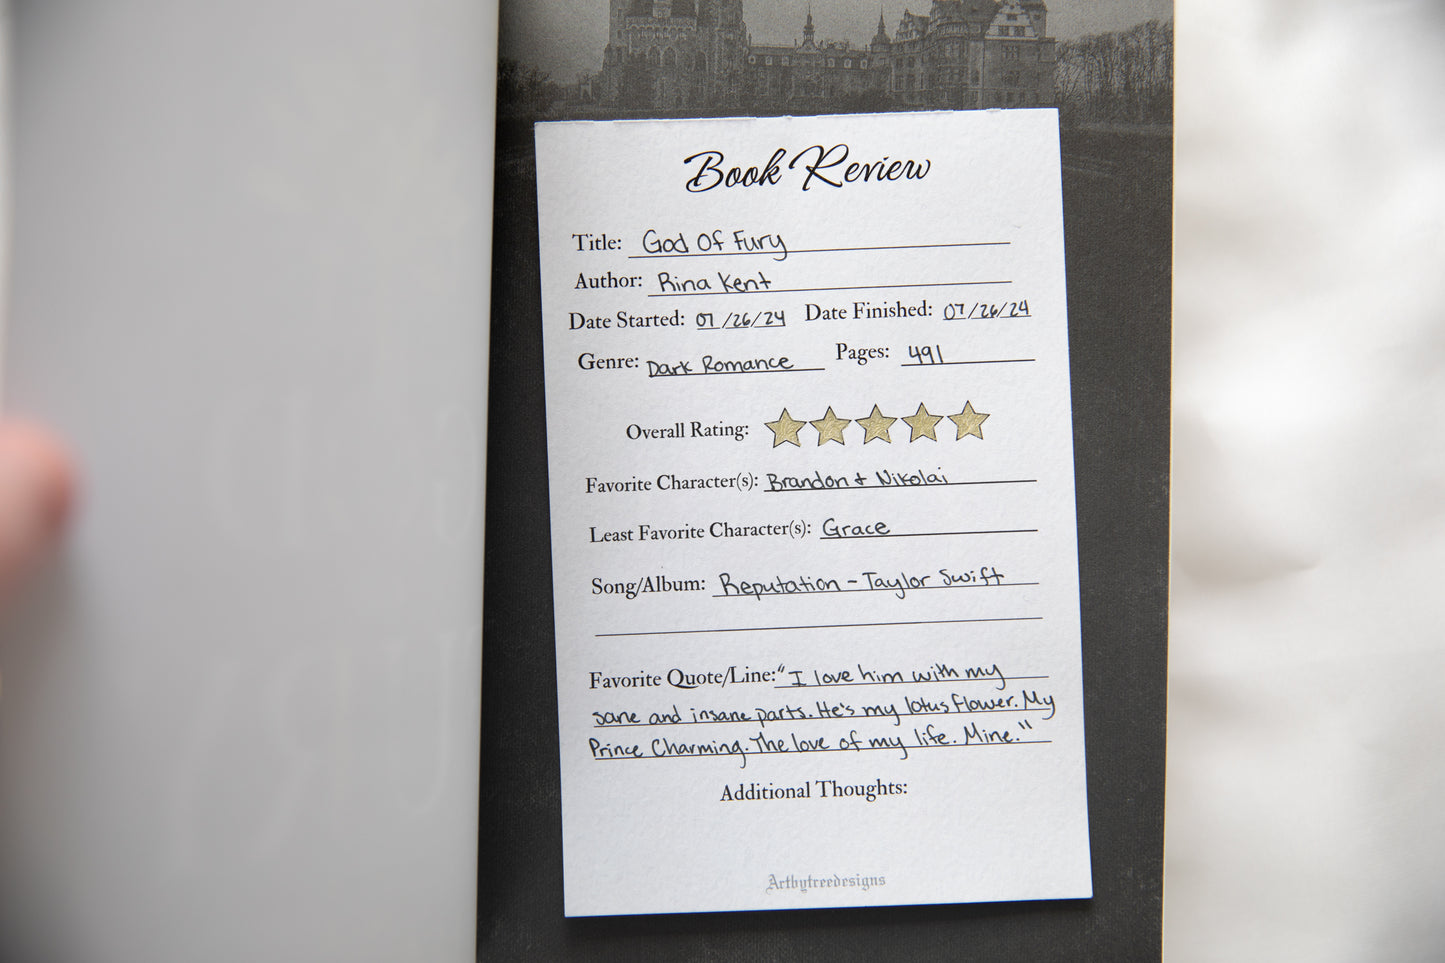 Book Review
Title: God Of Fury
Author: Rina Kent
Date Started: 07/26/24 Date Finished: 07/26/24
Genre: Dark Romance Pages: 491
Overall Rating:
Favorite Character(s): Brandon + Nikolai
Least Favorite Character(s): Grace
Song/Album: Reputation - Taylor Swift
Favorite Quote/Line: "I love him with my
sane and insane parts. He's my lotus flower. My
Prince Charming. The love of my life. Mine."
Additional Thoughts:
Artbytreedesigns